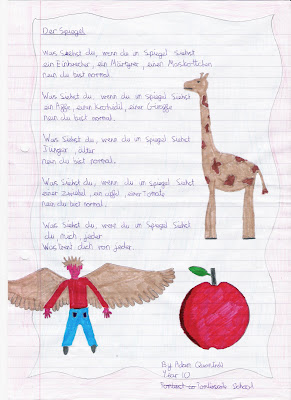 Der Spiegel
Was Siehst du, wenn du in Spiegel Siehst
ein Einbrecher, ein Märtyrer, einen Moskottchen
nein du bist normal.
Was Siehst du, wenn du in Spiegel Siehst
ein Affe, einen Krokodil, einer Giraffe
nein du bist normal.
Was Siehst du, wenn du in Spiegel Siehst
Jünger, älter
nein du bist normal.
Was Siehst du, wenn du in Spiegel Siehst
einer Zwiebel, ein apfel, einer Tomate
nein du bist normal.
Was Siehst du, wenn du in Spiegel Siehst
du, mich, jeder
Was trent dich von jeder.
By Adam
Year 10
School